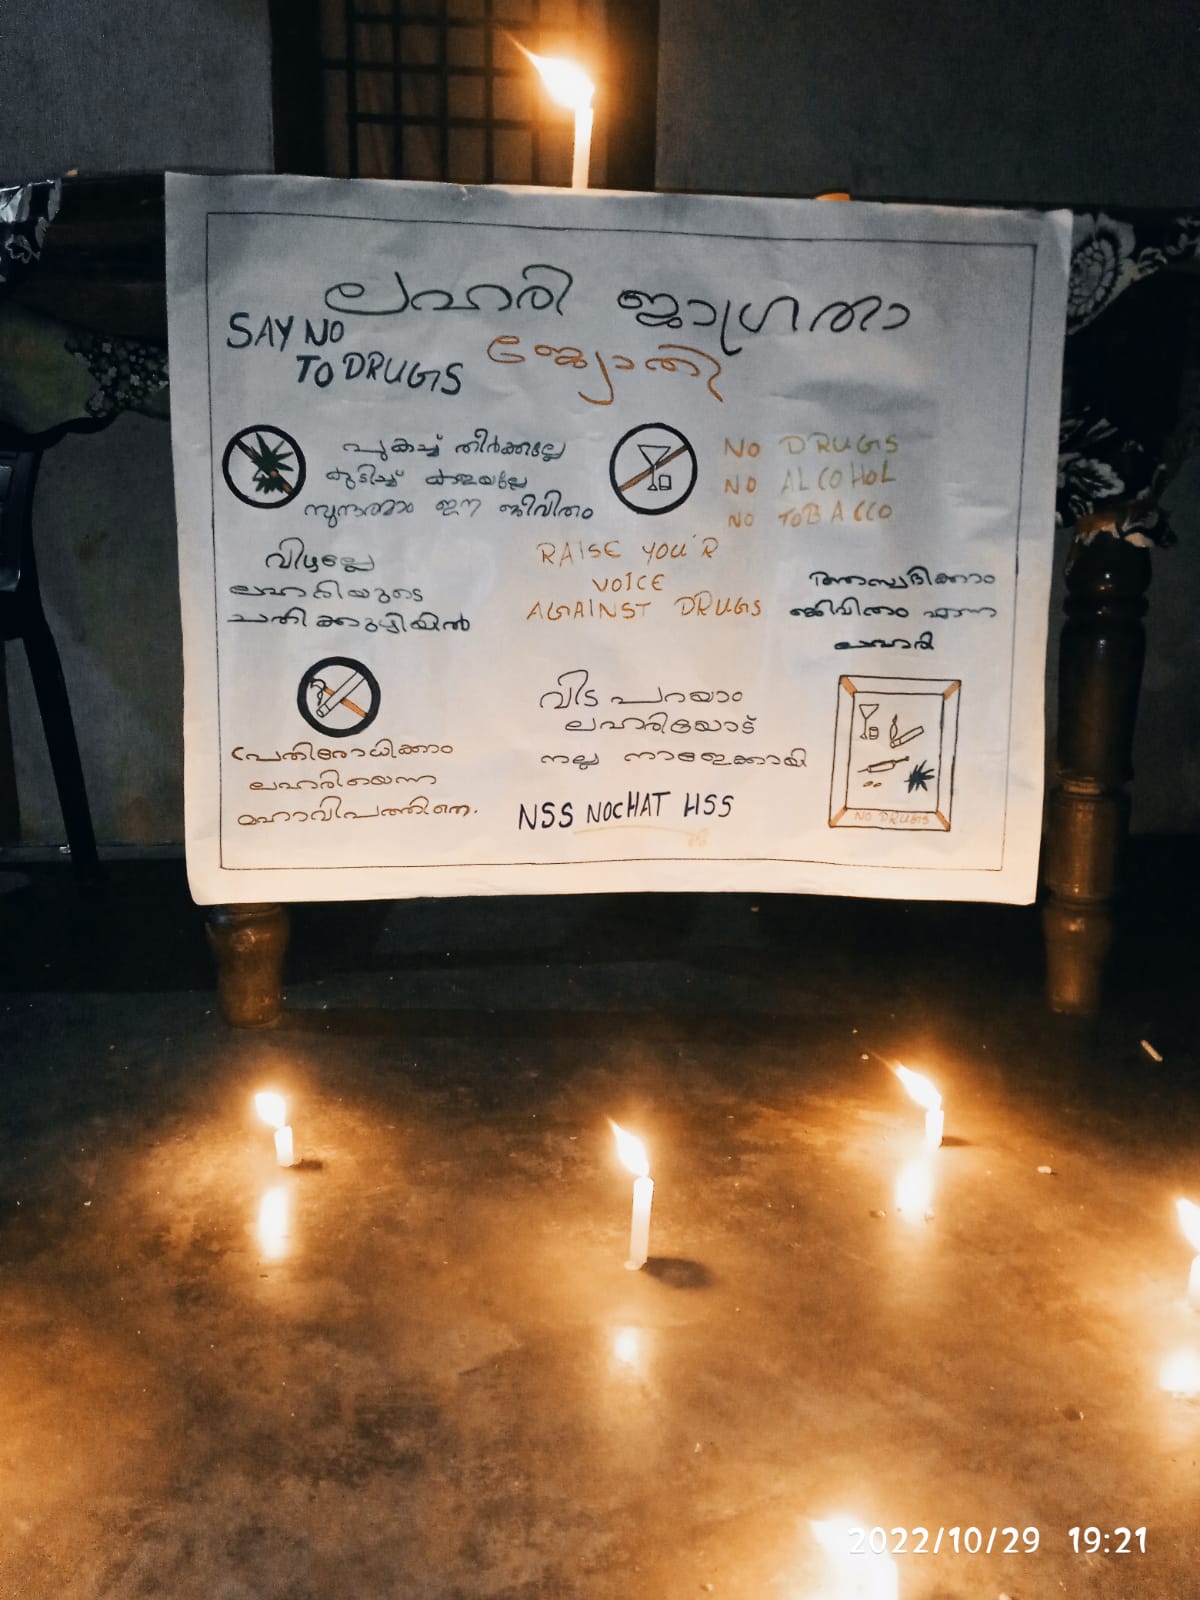 ലഹരി ജാഗ്രതാ
ജ്യോതി
SAY NO
TO DRUGS
പുകച്ച് തീർക്കല്ലേ
കുടിച്ച് കളയല്ലേ
സുന്ദരമാം ഈ ജീവിതം
NO DRUGS
NO ALCOHOL
NO TOBACCO
വീഴല്ലേ
ലഹരിയുടെ
ചതിക്കുഴിയിൽ
RAISE YOU'R
VOICE
AGAINST DRUGS
ആസ്വദിക്കാം
ജീവിതം എന്ന
ലഹരി
പ്രതിരോധിക്കാം
ലഹരിയെന്ന
മഹാവിപത്തിനെ.
വിട പറയാം
ലഹരിയോട്
നല്ല നാളേക്കായി
NSS NOCHAT HSS
NO DRUGS
2022/10/29 19:21